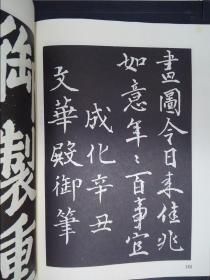 畫圖今日来佳兆
如意年々百事宜
成化辛丑
文華殿御筆
御製重